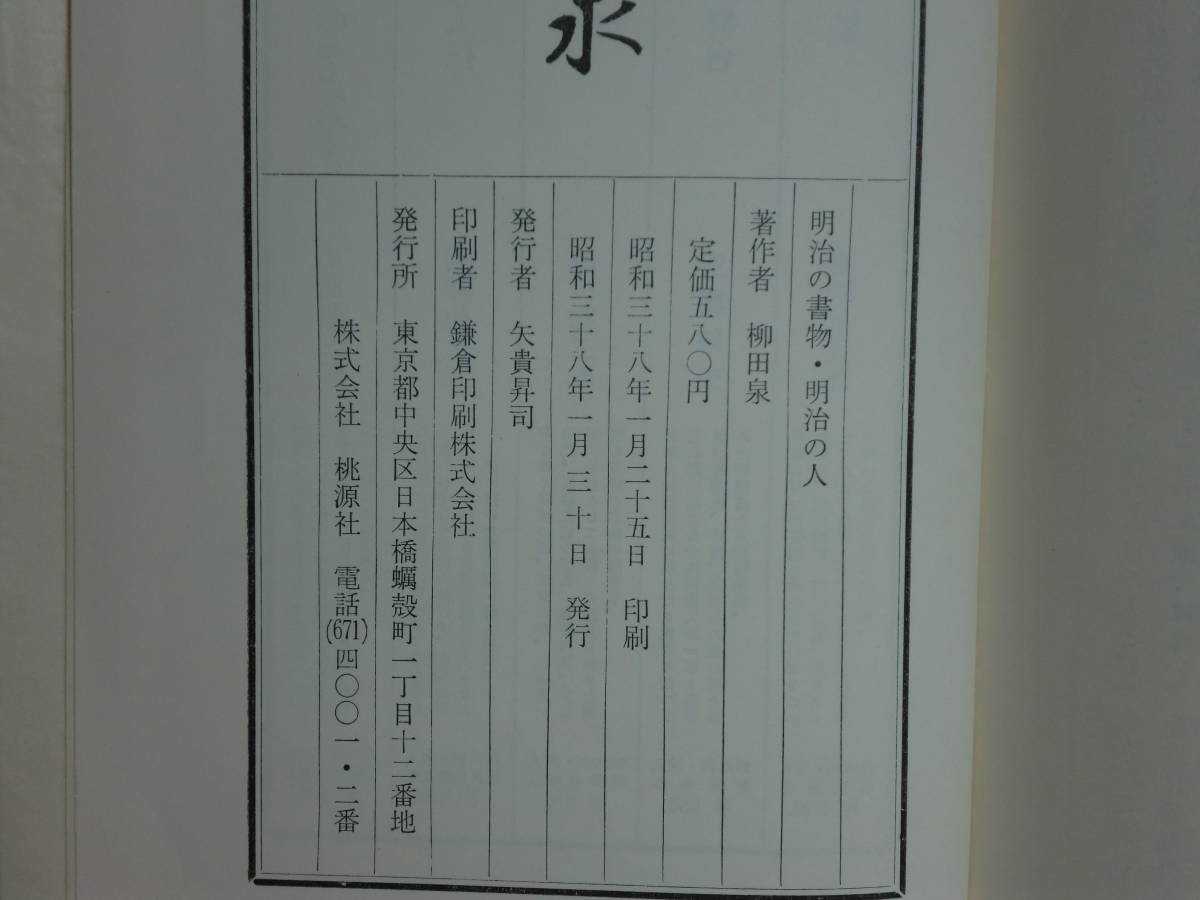 泉
明治の書物・明治の人
著作者 柳田泉
定価五八〇円
昭和三十八年一月二十五日 印刷
昭和三十八年一月三十日 発行
発行者 矢貴昇司
印刷者 鎌倉印刷株式会社
発行所 東京都中央区日本橋蠣殻町一丁目十二番地
株式会社 桃源社 電話(671)四〇〇一・二番